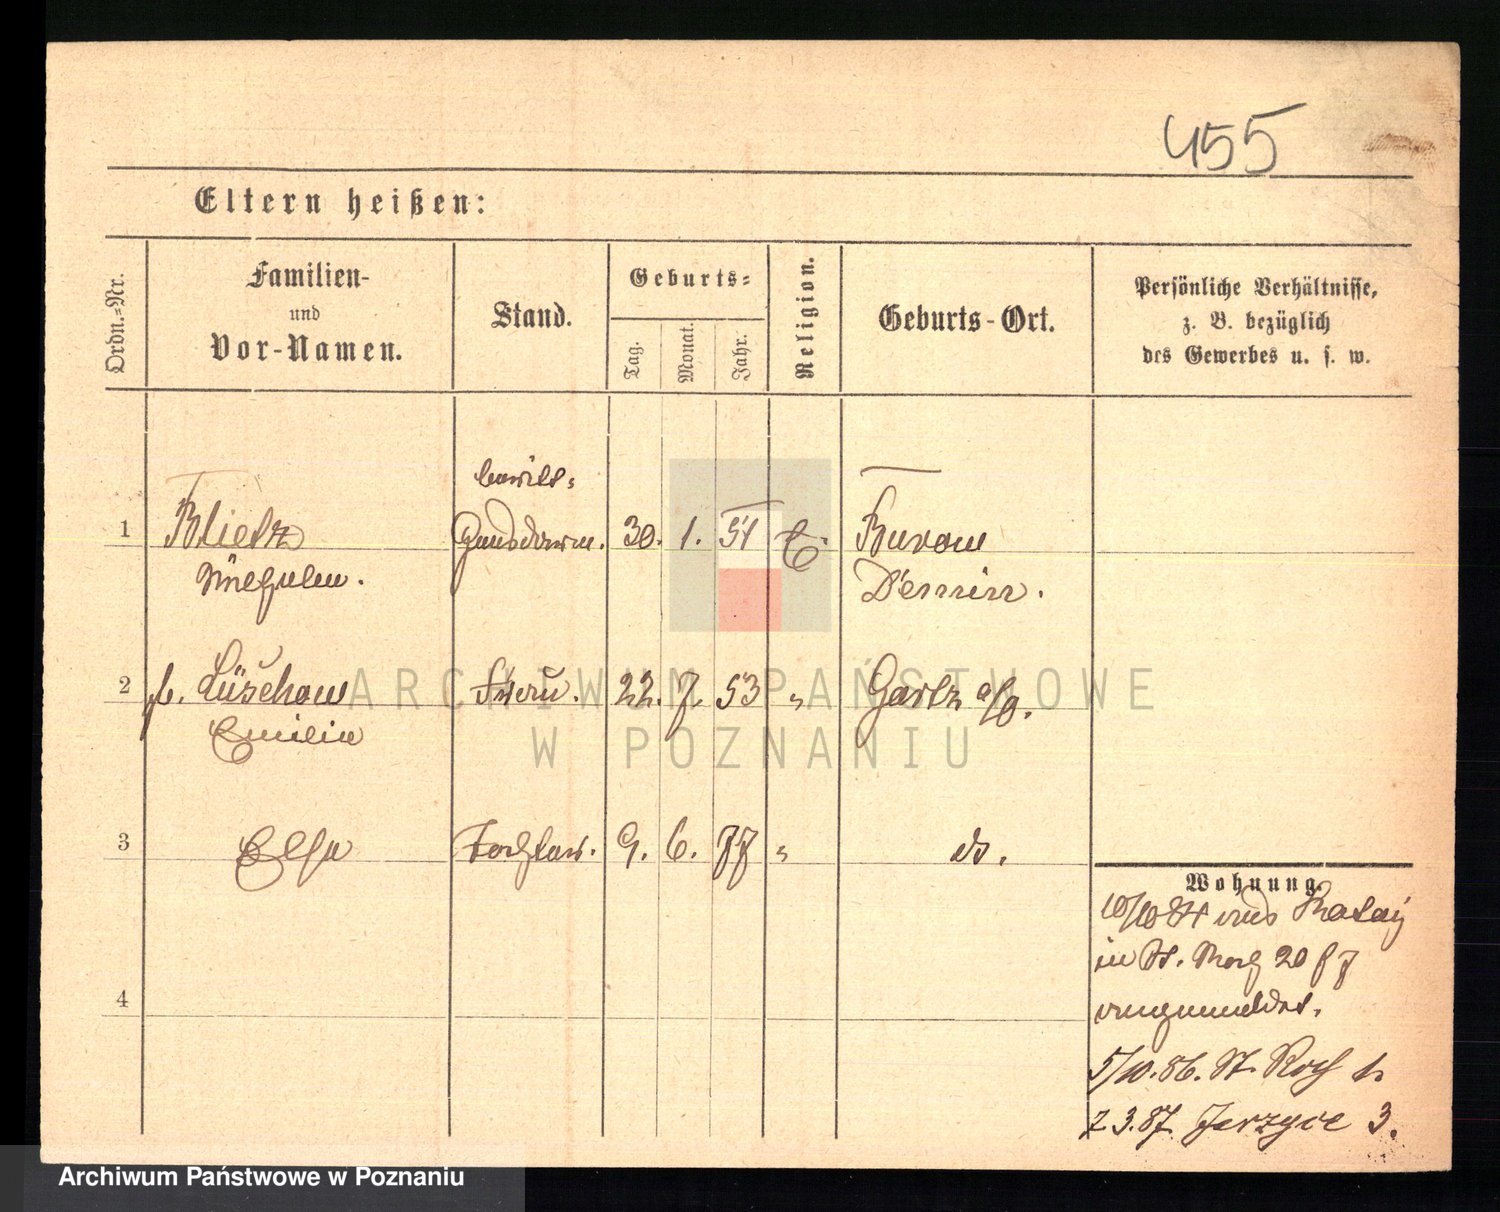 455
Eltern heißen:
Ordn.-Nr.
Familien-
und
Vor-Namen.
Stand.
Geburts-
Tag.
Monat.
Jahr.
Religion.
Geburts-Ort.
Persönliche Verhältnisse,
z. B. bezüglich
des Gewerbes u. s. w.
1 Blietz 30. 1. 51
Wilhelm. Demmin.
2 Lüschow Frau. 22. 7. 53 " Gartz a/O.
Emilie
3 Elsa Tochter. 9. 6. 77 " do.
4
Wohnung.
10/10 84 aus Rataj
in St. 20
angemeldet.
5/10. 86. St. Roch 1.
2.3.87. Jerzyce 3.
ARCHIWUM PAŃSTWOWE
W POZNANIU
Archiwum Państwowe w Poznaniu